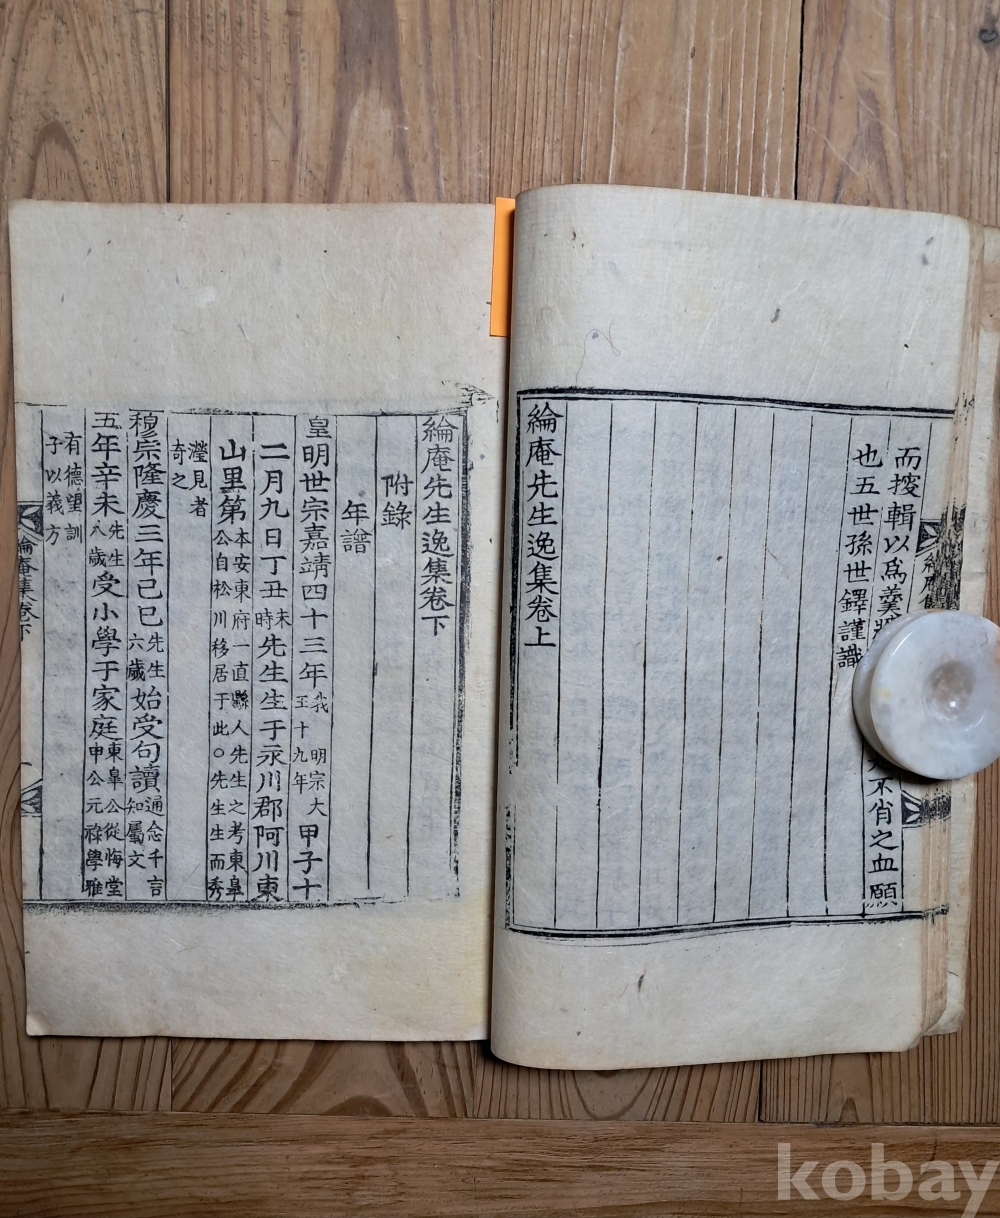 而搜輯以爲羹墻
不肖之血願
也五世孫世鐸謹識
綸庵先生逸集卷上
綸庵先生逸集卷下
附錄
年譜
皇明世宗嘉靖四十三年我 明宗大王十九年甲子十
二月九日丁丑未時先生生于永川郡阿川東
山里第本安東府一直縣人先生之考東皐公自松川移居于此○先生生而秀
瀅見者奇之
穆宗隆慶三年己巳先生六歲始受句讀通念千言知屬文
五年辛未先生八歲受小學于家庭東皐公從悔堂申公元祿學雅
有德望訓子以義方
綸庵集卷下
kobay